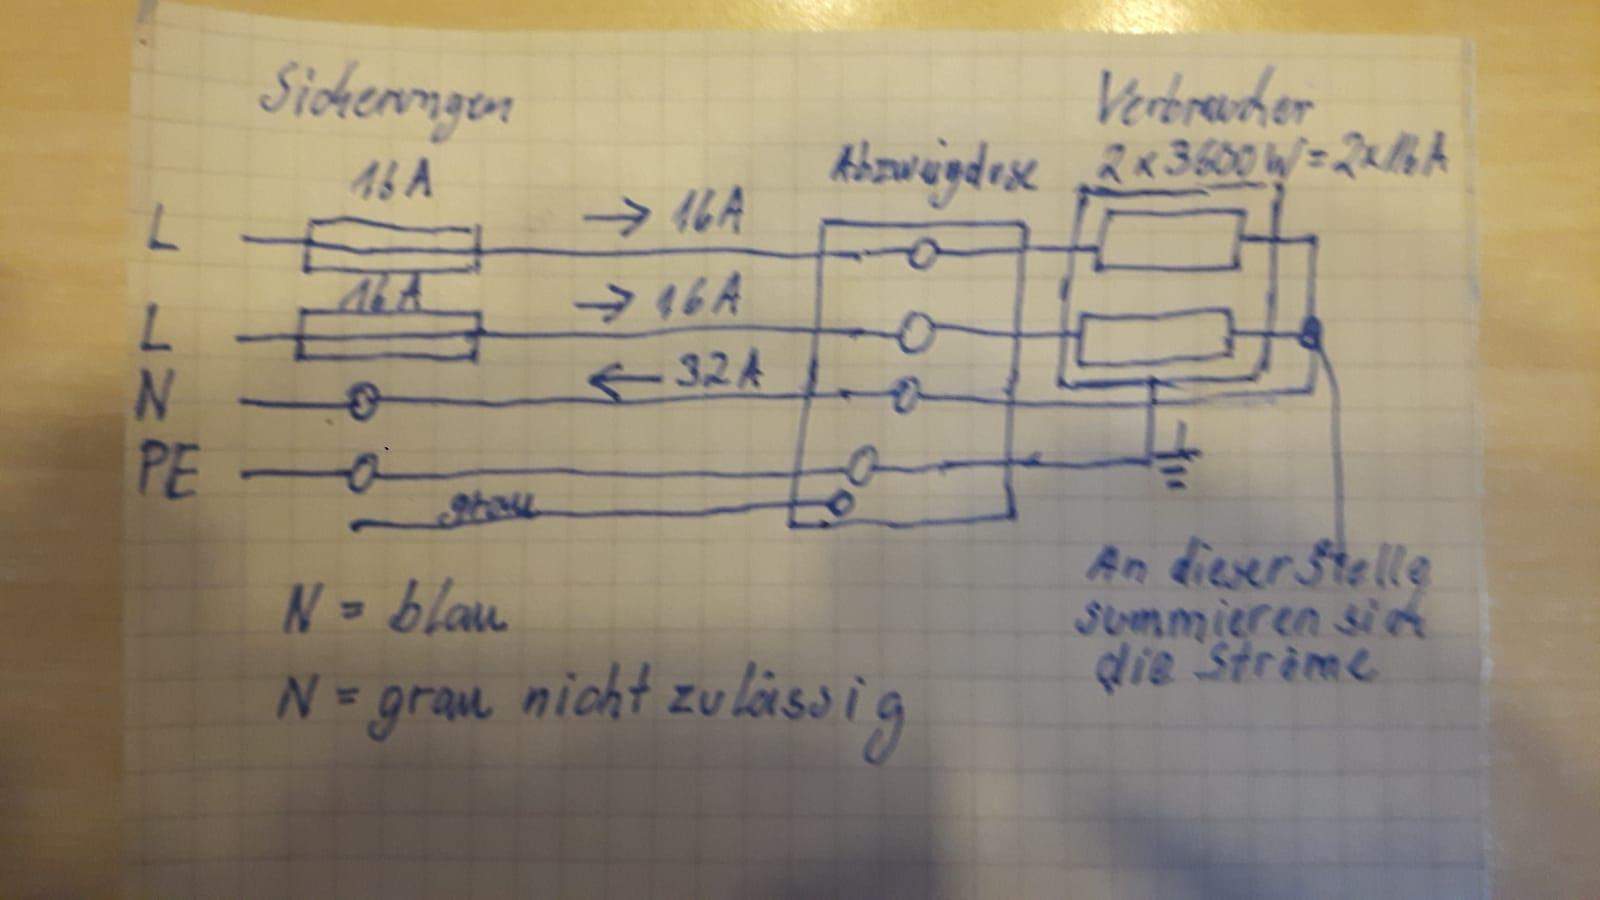 Sicherungen
Verbraucher
2 x 3600 W = 2 x 16 A
16 A
Abzweigdose
L
→ 16 A
16 A
L
→ 16 A
N
← 32 A
PE
grau
An dieser Stelle
summieren sich
die Ströme
N = blau
N = grau nicht zulässig